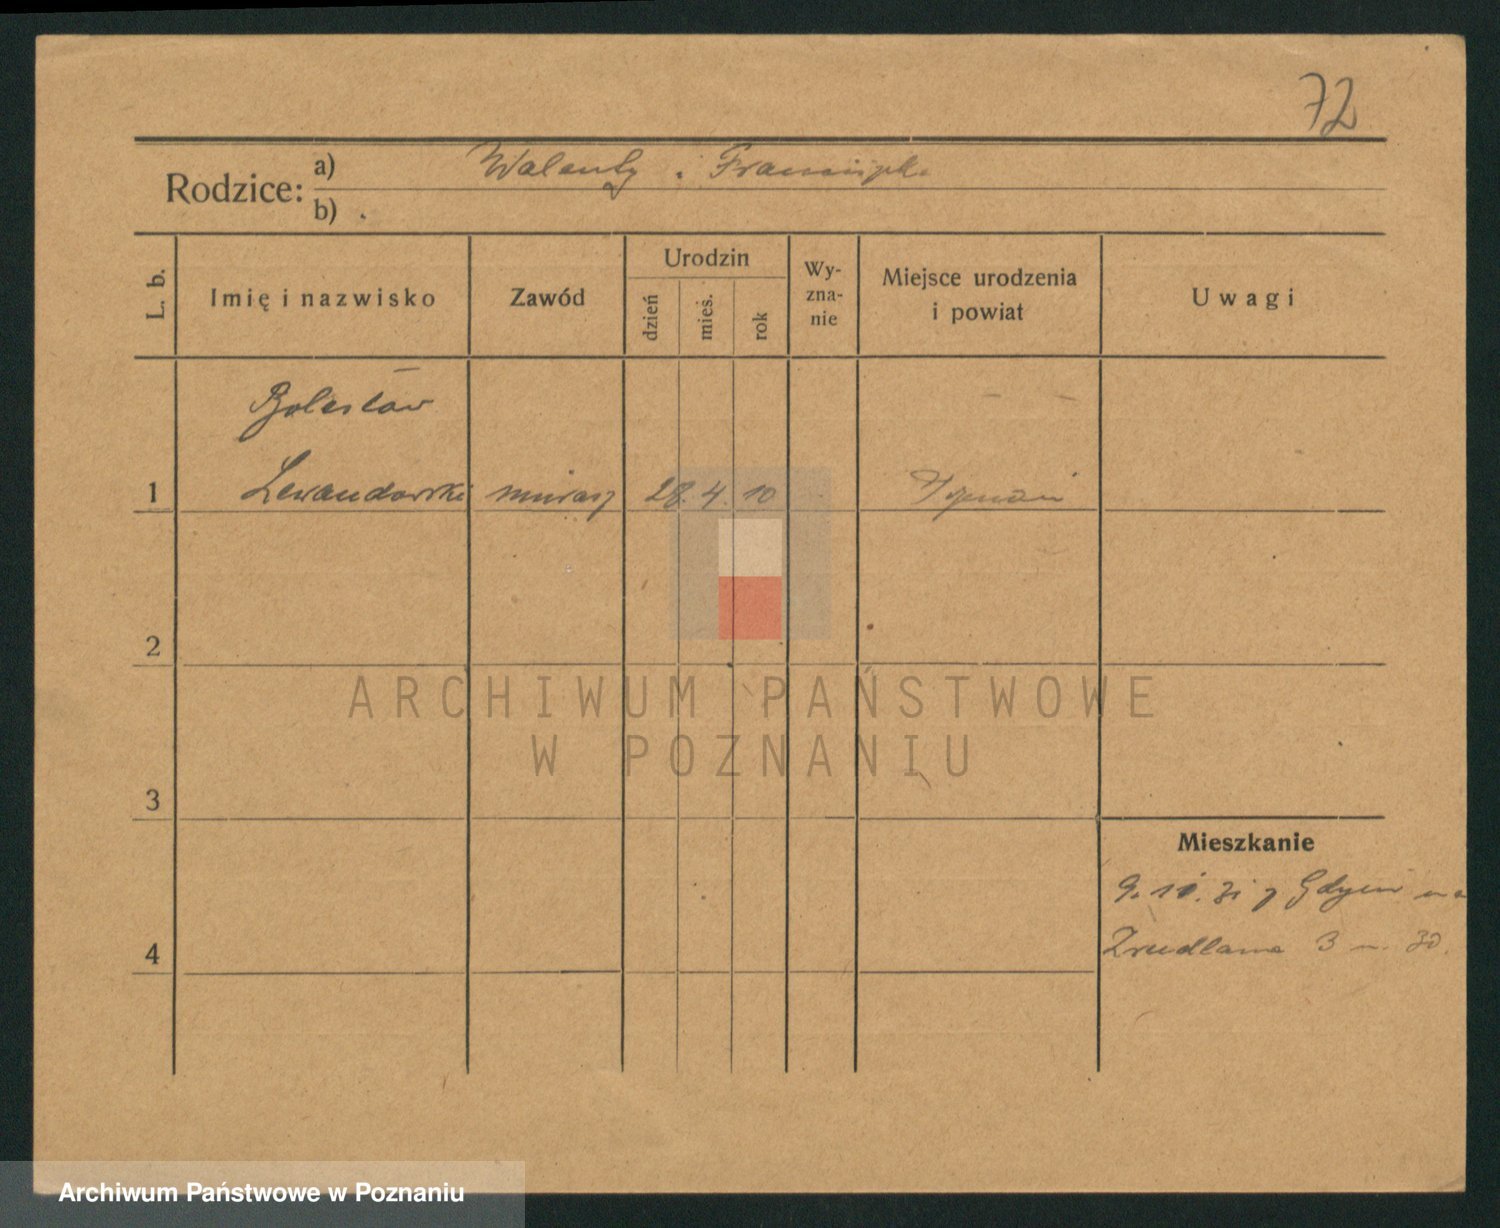 72
Rodzice: a) Walenty i Franciszka
b)
L. b.
Imię i nazwisko
Zawód
Urodzin
dzień
mieś.
rok
Wy-
zna-
nie
Miejsce urodzenia
i powiat
Uwagi
Bolesław
1 Lewandowski murarz 28. 4. 10
2
3
4
Mieszkanie
9. 10. 31 z Gdyni na
3 m. 30.
ARCHIWUM PAŃSTWOWE
W POZNANIU
Archiwum Państwowe w Poznaniu